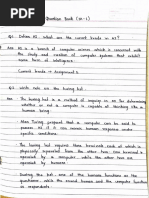 Question Bank (M-1)
Q1. Define AI. What are the current trends in AI?
Ans AI is a branch of computer science which is concerned with
the study and creation of computer systems that exhibit
some form of intelligence.
Current trends → Assignment 1
Q2. Write note on the turing test.
Ans The turing test is a method of inquiry in AI for determining
whether or not a computer is capable of thinking like a
human being.
Alan Turing proposed that a computer can be said to
possess AI if it can mimic human response under
specific conditions.
The turing test requires three terminals each of which is
physically separated from the other two. One terminal is
operated by a computer, while the other two are
operated by humans.
During the test, one of the humans functions as the
questioner, while the second human and the computer function
as respondents.